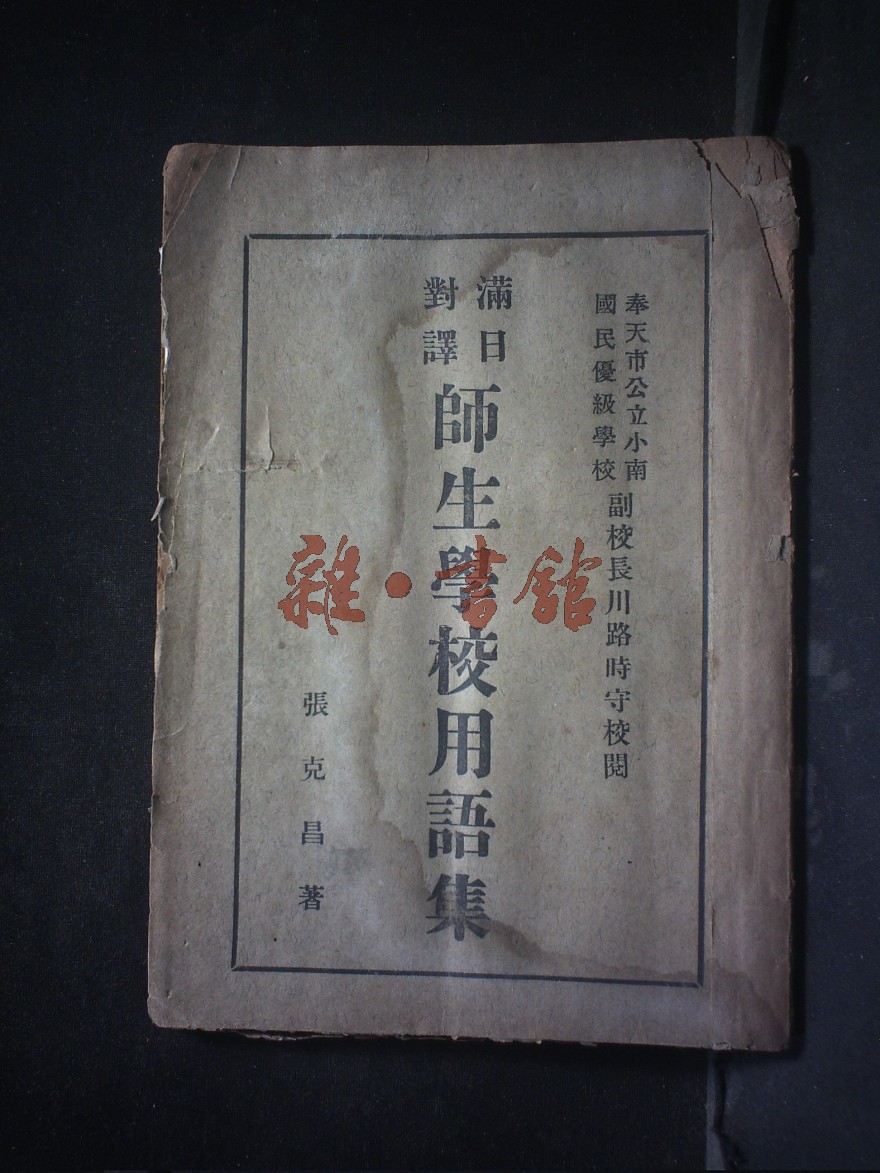 奉天市公立小南
國民優級學校
副校長川路時守校閱
滿日
對譯
師生學校用語集
張克昌著
雜·書館